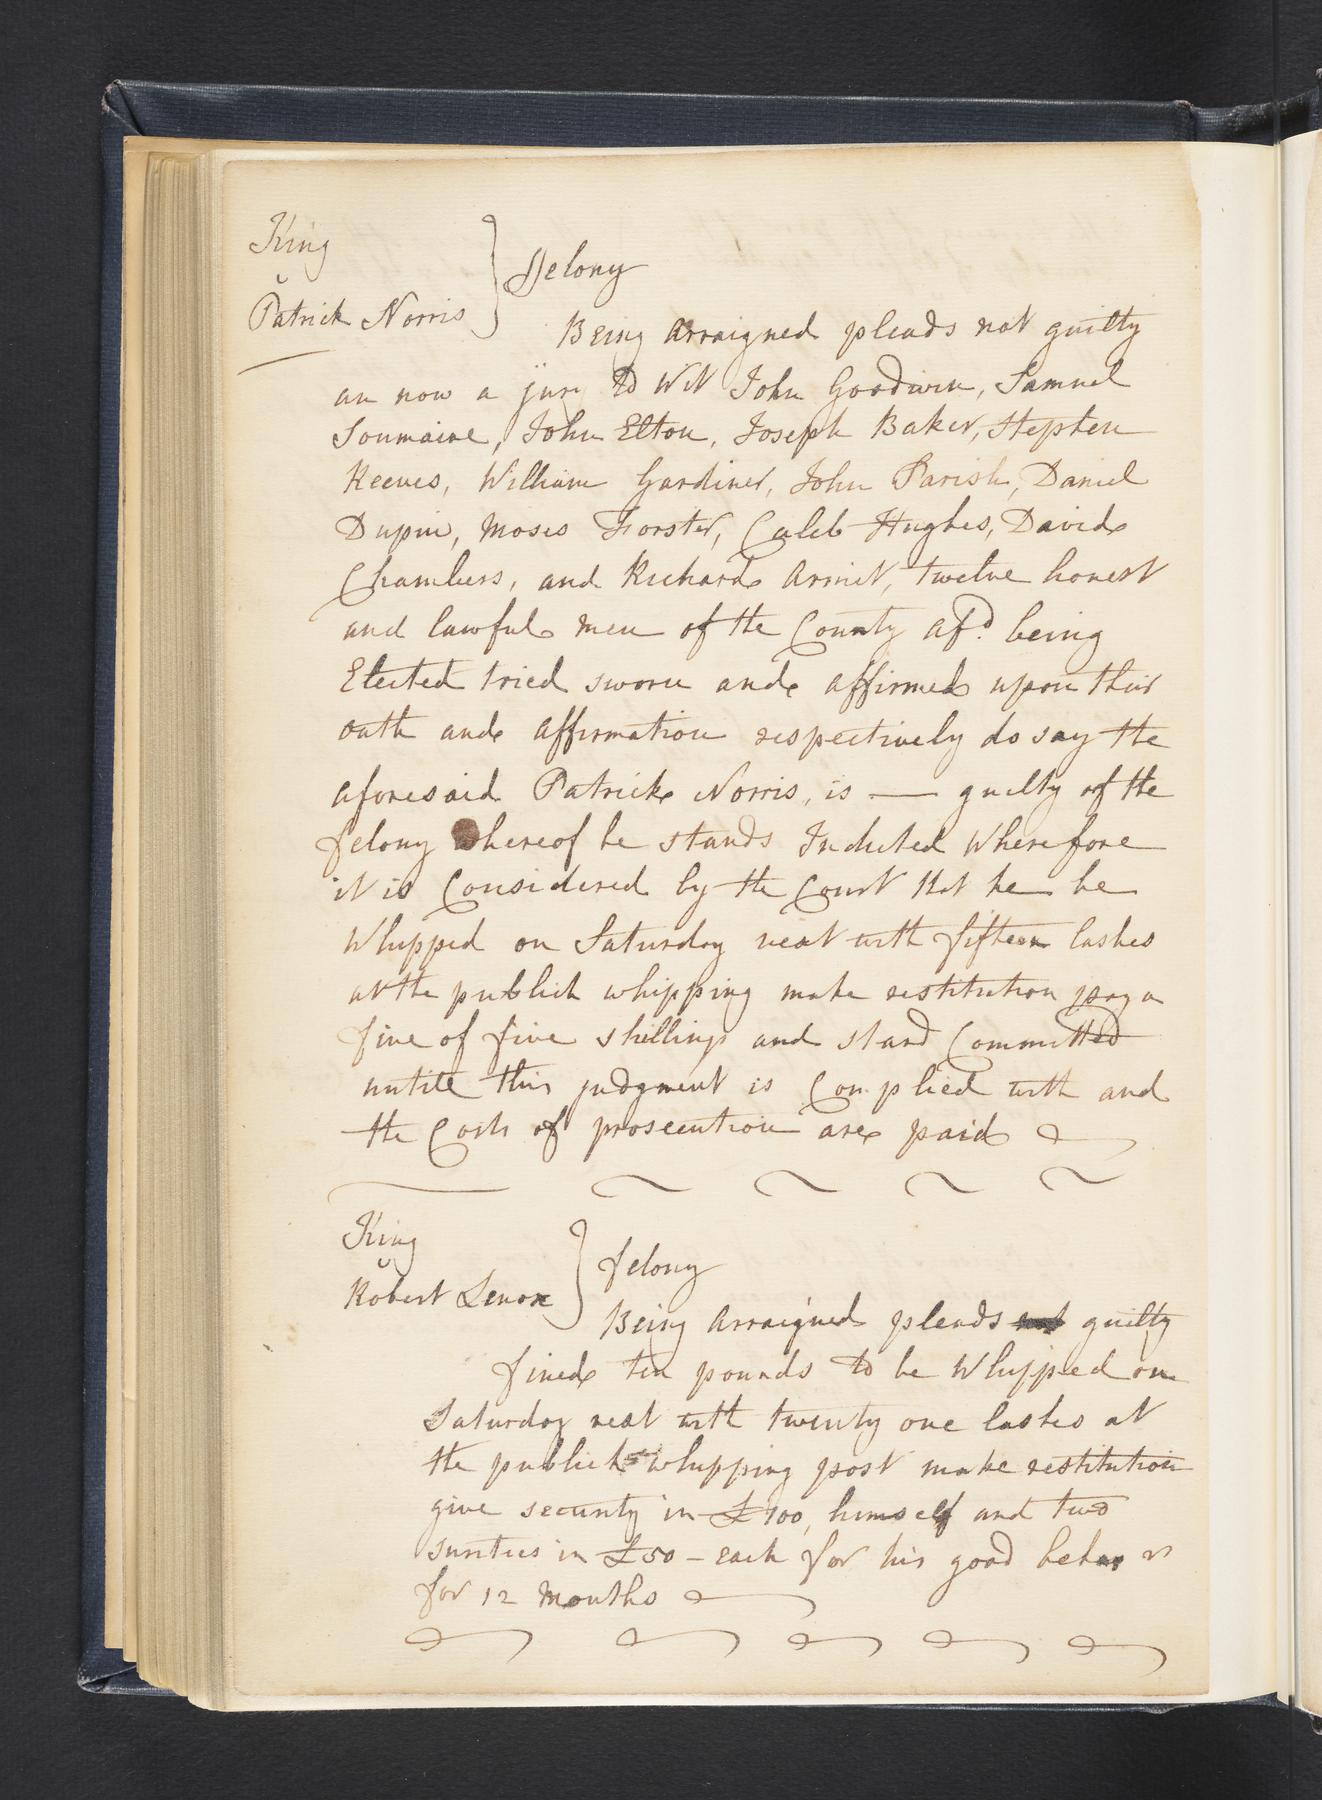 King
v
Patrick Norris } Felony
Being arraigned pleads not guilty
an now a jury to Wit John Goodwin, Samuel
Soumaine, John Elton, Joseph Baker, Stephen
Reeves, William Gardiner, John Parish, Daniel
Dupui, Moses Forster, Caleb Hughes, David
Chambers, and Richard Armit, twelve honest
and lawful men of the County afd. being
Elected tried sworn and affirmed upon their
oath and affirmation respectively do say the
aforesaid Patrick Norris, is — guilty of the
felony whereof he stands Indicted Wherefore
it is Considered by the Court that he be
Whipped on Saturday next with fifteen lashes
at the publick whipping make restitution pay a
fine of five shillings and stand Committed
untill this judgment is Complied with and
the Costs of prosecution are paid
King
v
Robert Lenox } felony
Being Arraigned pleads guilty
fined ten pounds to be Whipped on
Saturday next with twenty one lashes at
the publick whipping post make restitution
give security in £100, himself and two
sureties in £50 – each for his good
for 12 Months